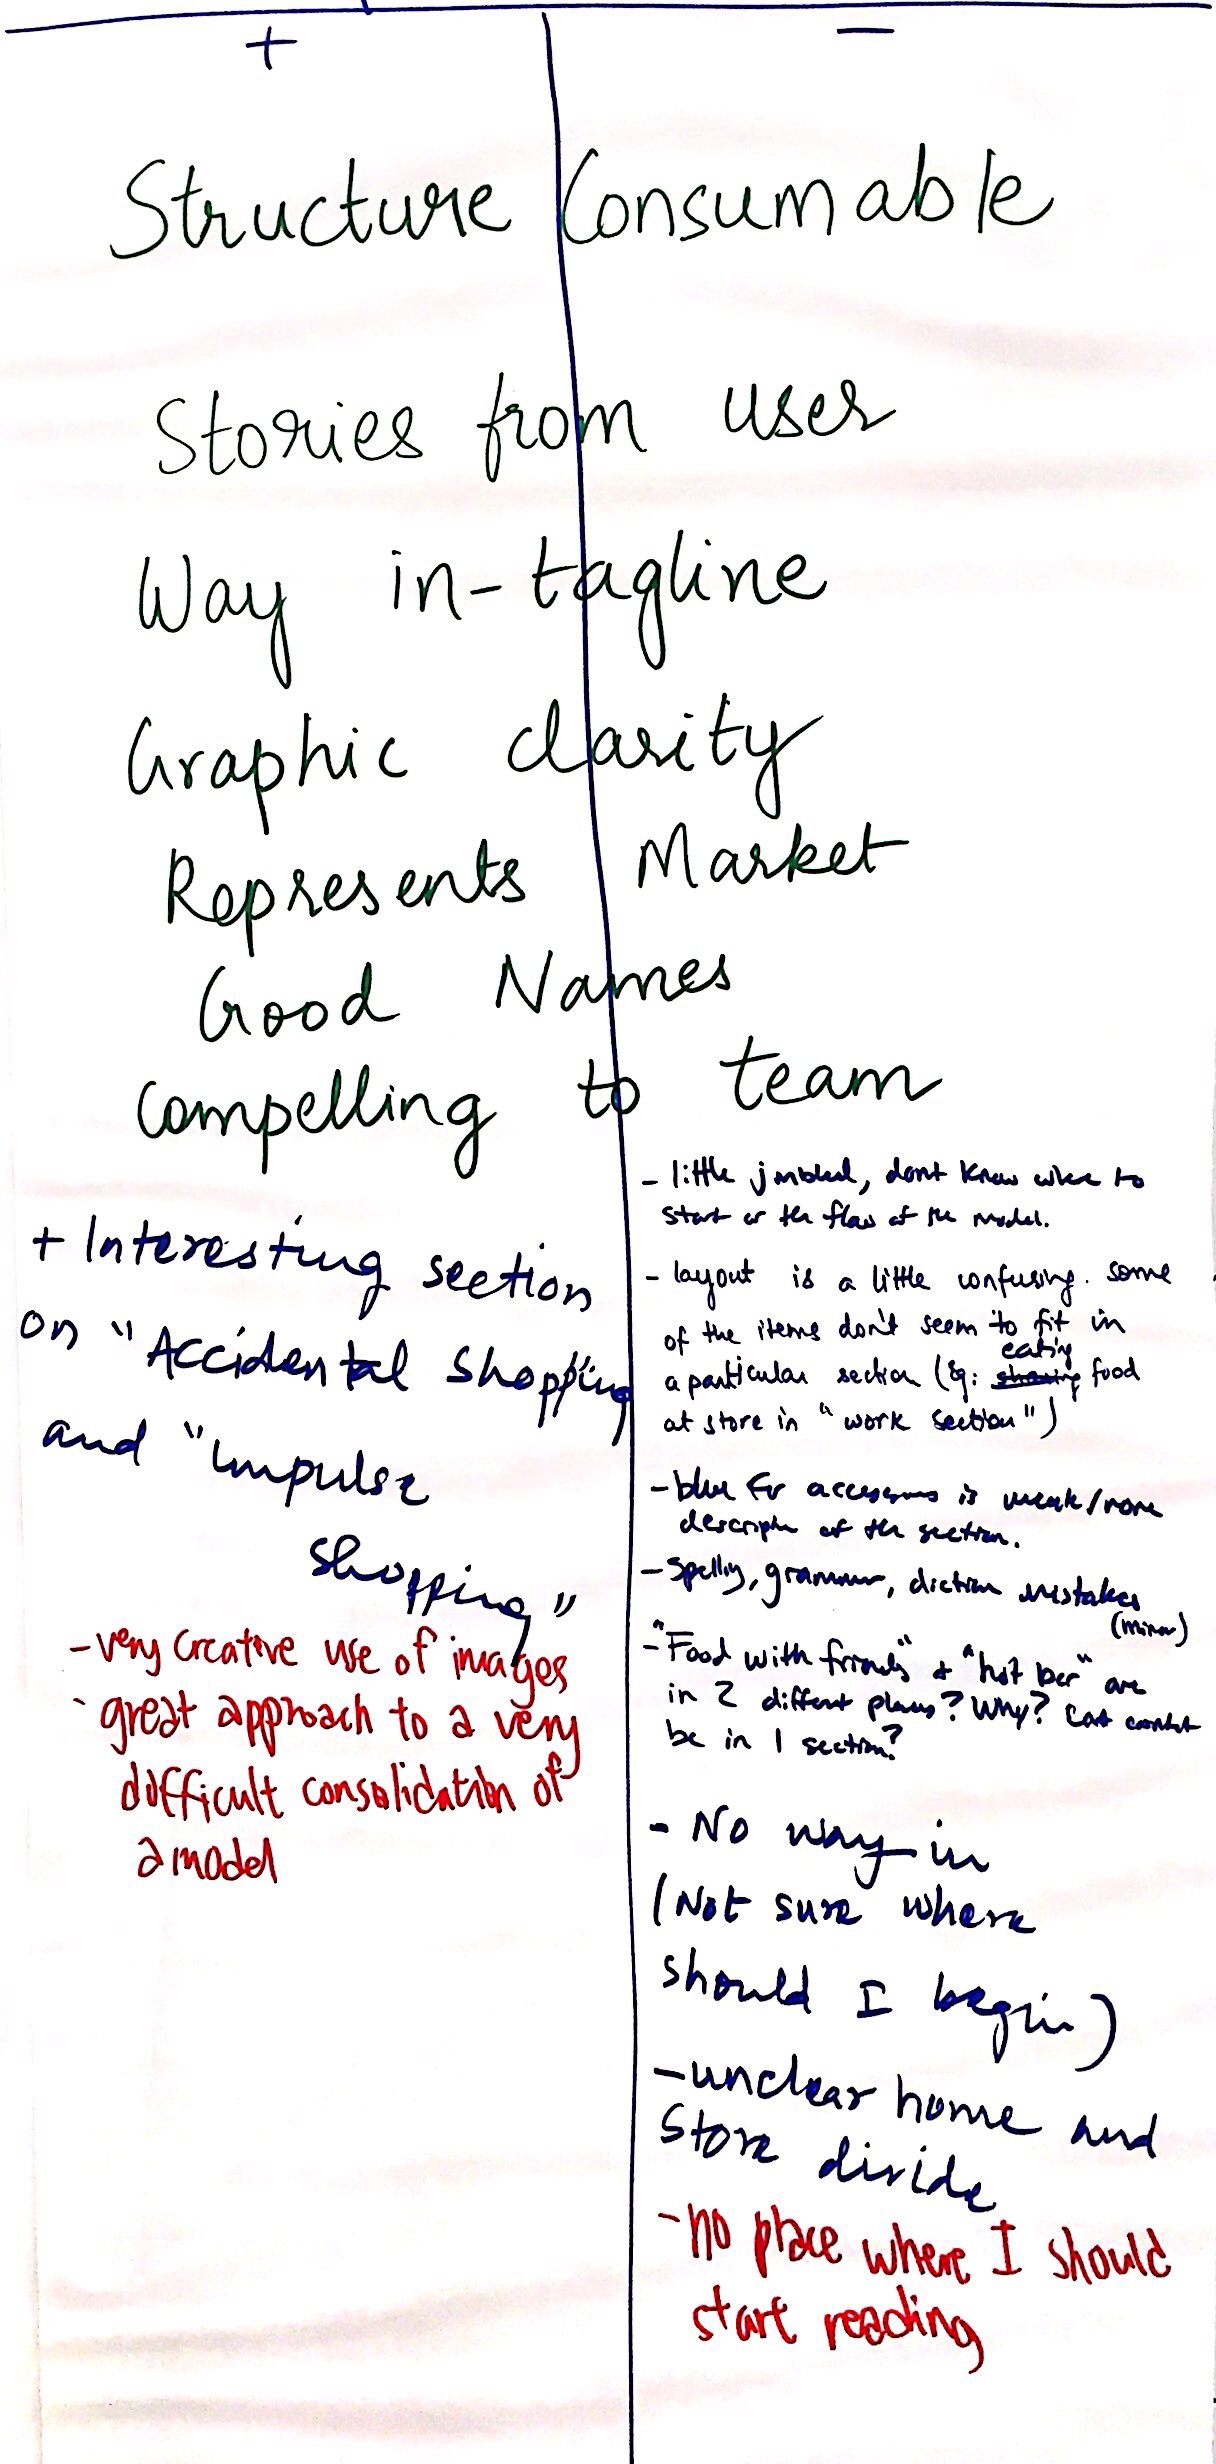 + −
Structure Consumable
Stories from user
Way in-tagline
Graphic clarity
Represents Market
Good Names
Compelling to team
+ Interesting section
on "Accidental shopping
and "Impulse
shopping"
- very creative use of images
- great approach to a very
difficult consolidation of
a model
- little jmbled, dont know where to
start or the flow of the model.
- layout is a little confusing. some
of the items don't seem to fit in
eating
a particular section (Eg: sharing food
at store in "work section")
- blue for is weak/none
of the section.
- spelling, grammar, diction mistakes
(minor)
- "Food with friends" & "hot bar" are
in 2 different places? Why?
be in 1 section?
- No way in
(Not sure where
should I begin)
- unclear home and
store divide
- no place where I should
start reading